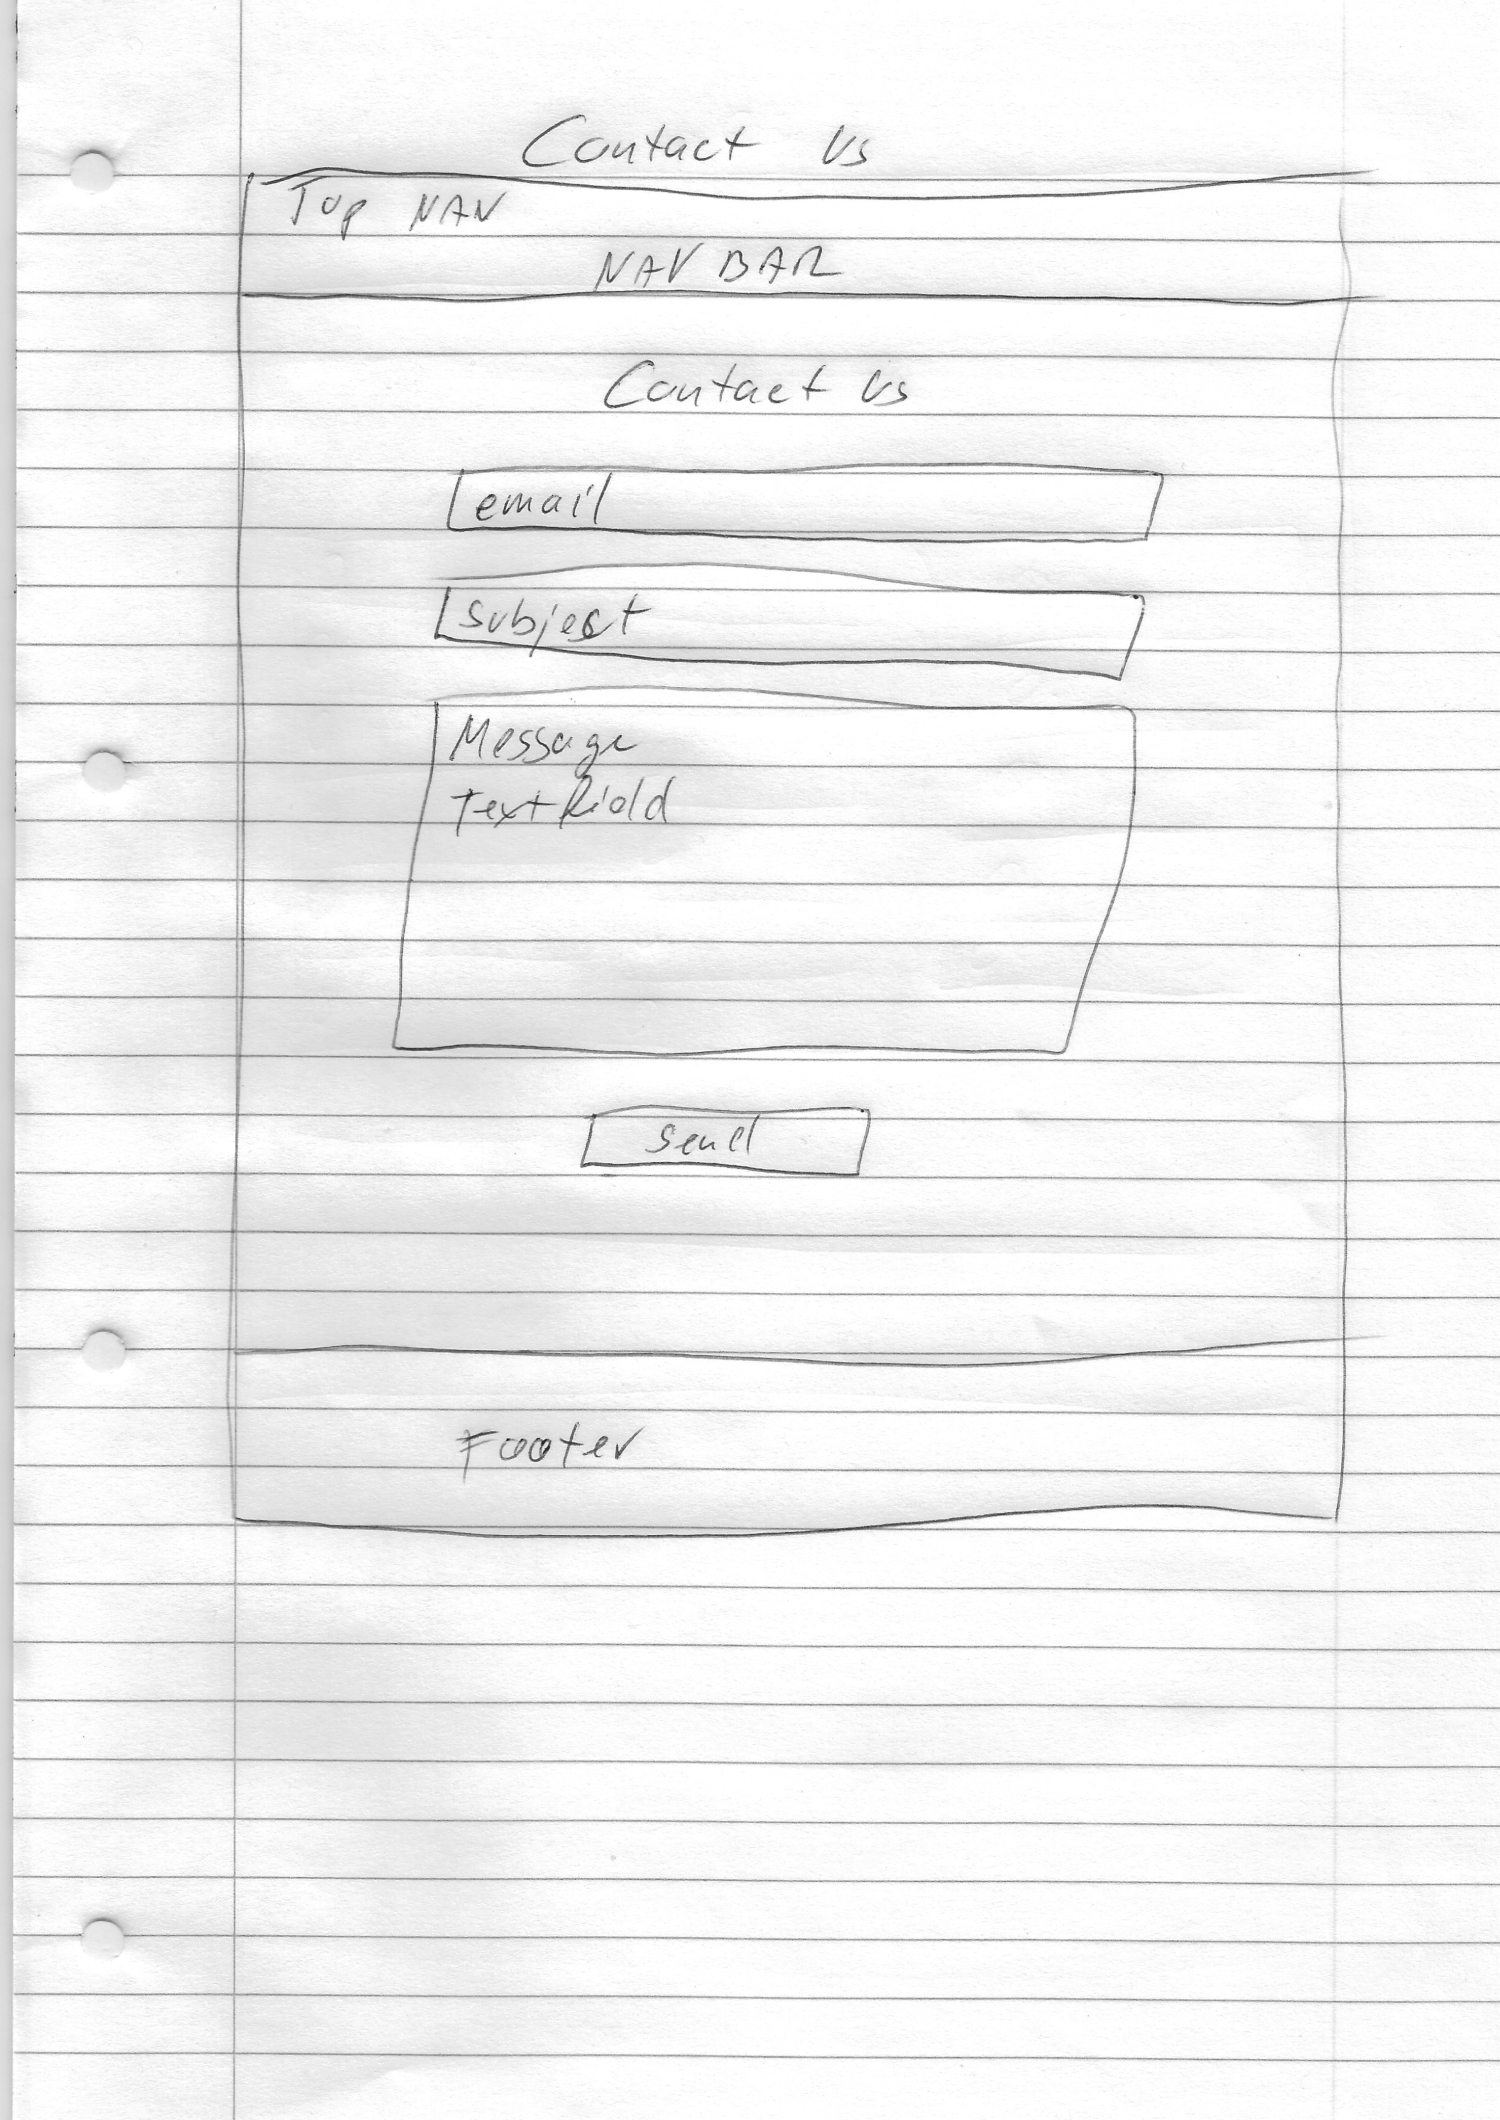 Contact Us
Top NAV
NAV BAR
Contact Us
email
subject
Message
Textfield
send
Footer